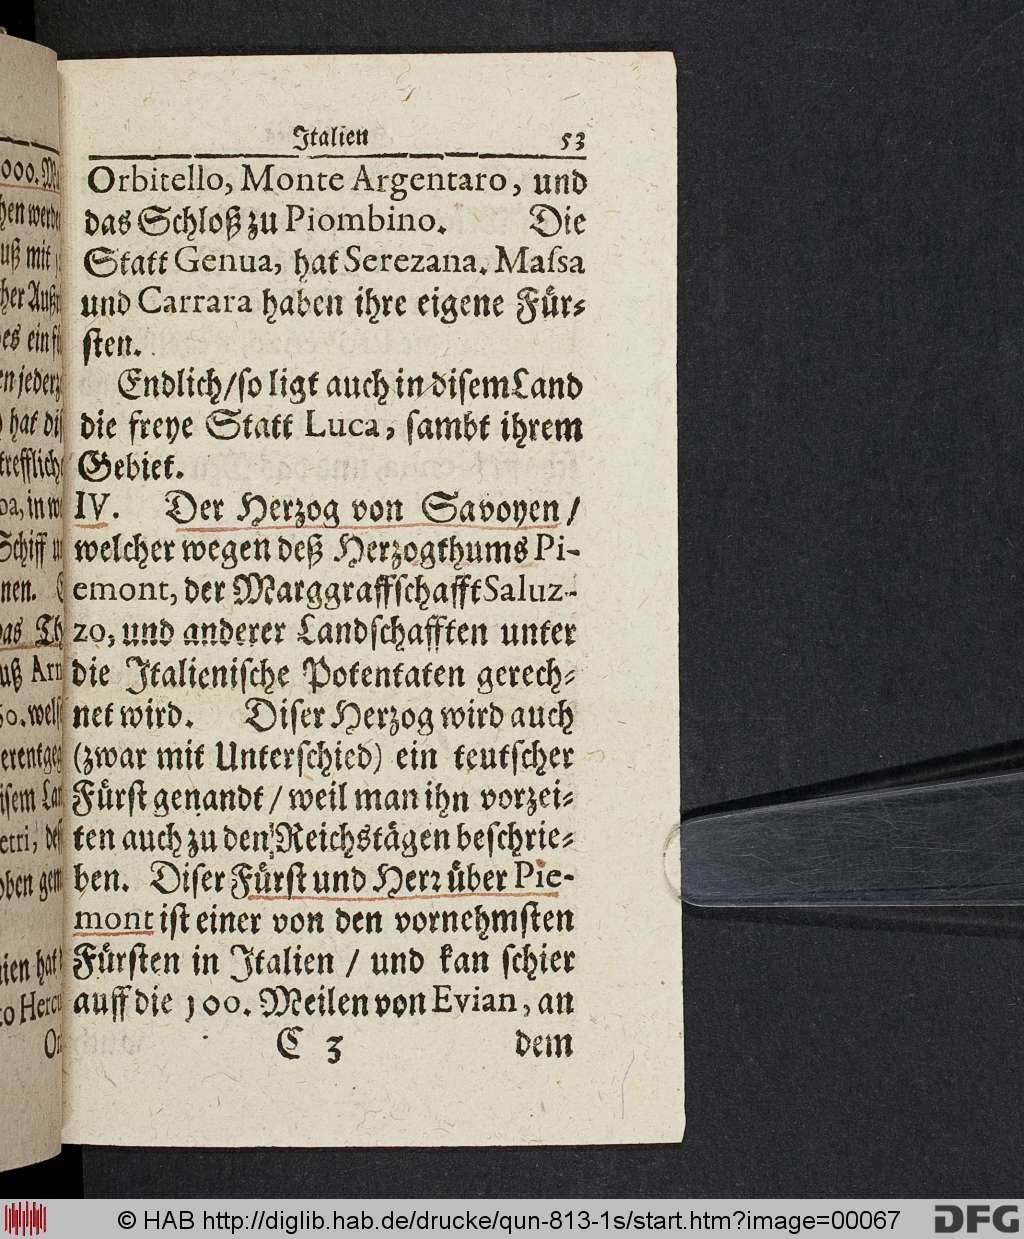 Italien 53
Orbitello, Monte Argentaro, und
das Schloß zu Piombino. Die
Statt Genua, hat Serezana. Maſsa
und Carrara haben ihre eigene Für⸗
ſten.
Endlich/ſo ligt auch in diſem Land
die freye Statt Luca, ſambt ihrem
Gebiet.
IV. Der Herzog von Savoyen /
welcher wegen deß Herzogthums Pi-
emont, der Marggraffſchafft Saluz-
zo, und anderer Landſchafften unter
die Italieniſche Potentaten gerech⸗
net wird. Diſer Herzog wird auch
(zwar mit Unterſchied) ein teutſcher
Fürſt genandt / weil man ihn vorzei⸗
ten auch zu den Reichstägen beſchrie⸗
ben. Diſer Fürſt und Herꝛ über Pie-
mont iſt einer von den vornehmſten
Fürſten in Italien / und kan ſchier
auff die 100. Meilen von Evian, an
C 3 dem
000. M
hen werde
uß mit
cher Auß
es einf
en jeder
hat di
trefflich
oa, in w
Schiff u
nen.
das Th
uß Arn
60. welſ
erentgeg
iſem Lan
etri, deſ
oben gem
nien hat
to Hercu
Or
© HAB http://diglib.hab.de/drucke/qun-813-1s/start.htm?image=00067 DFG